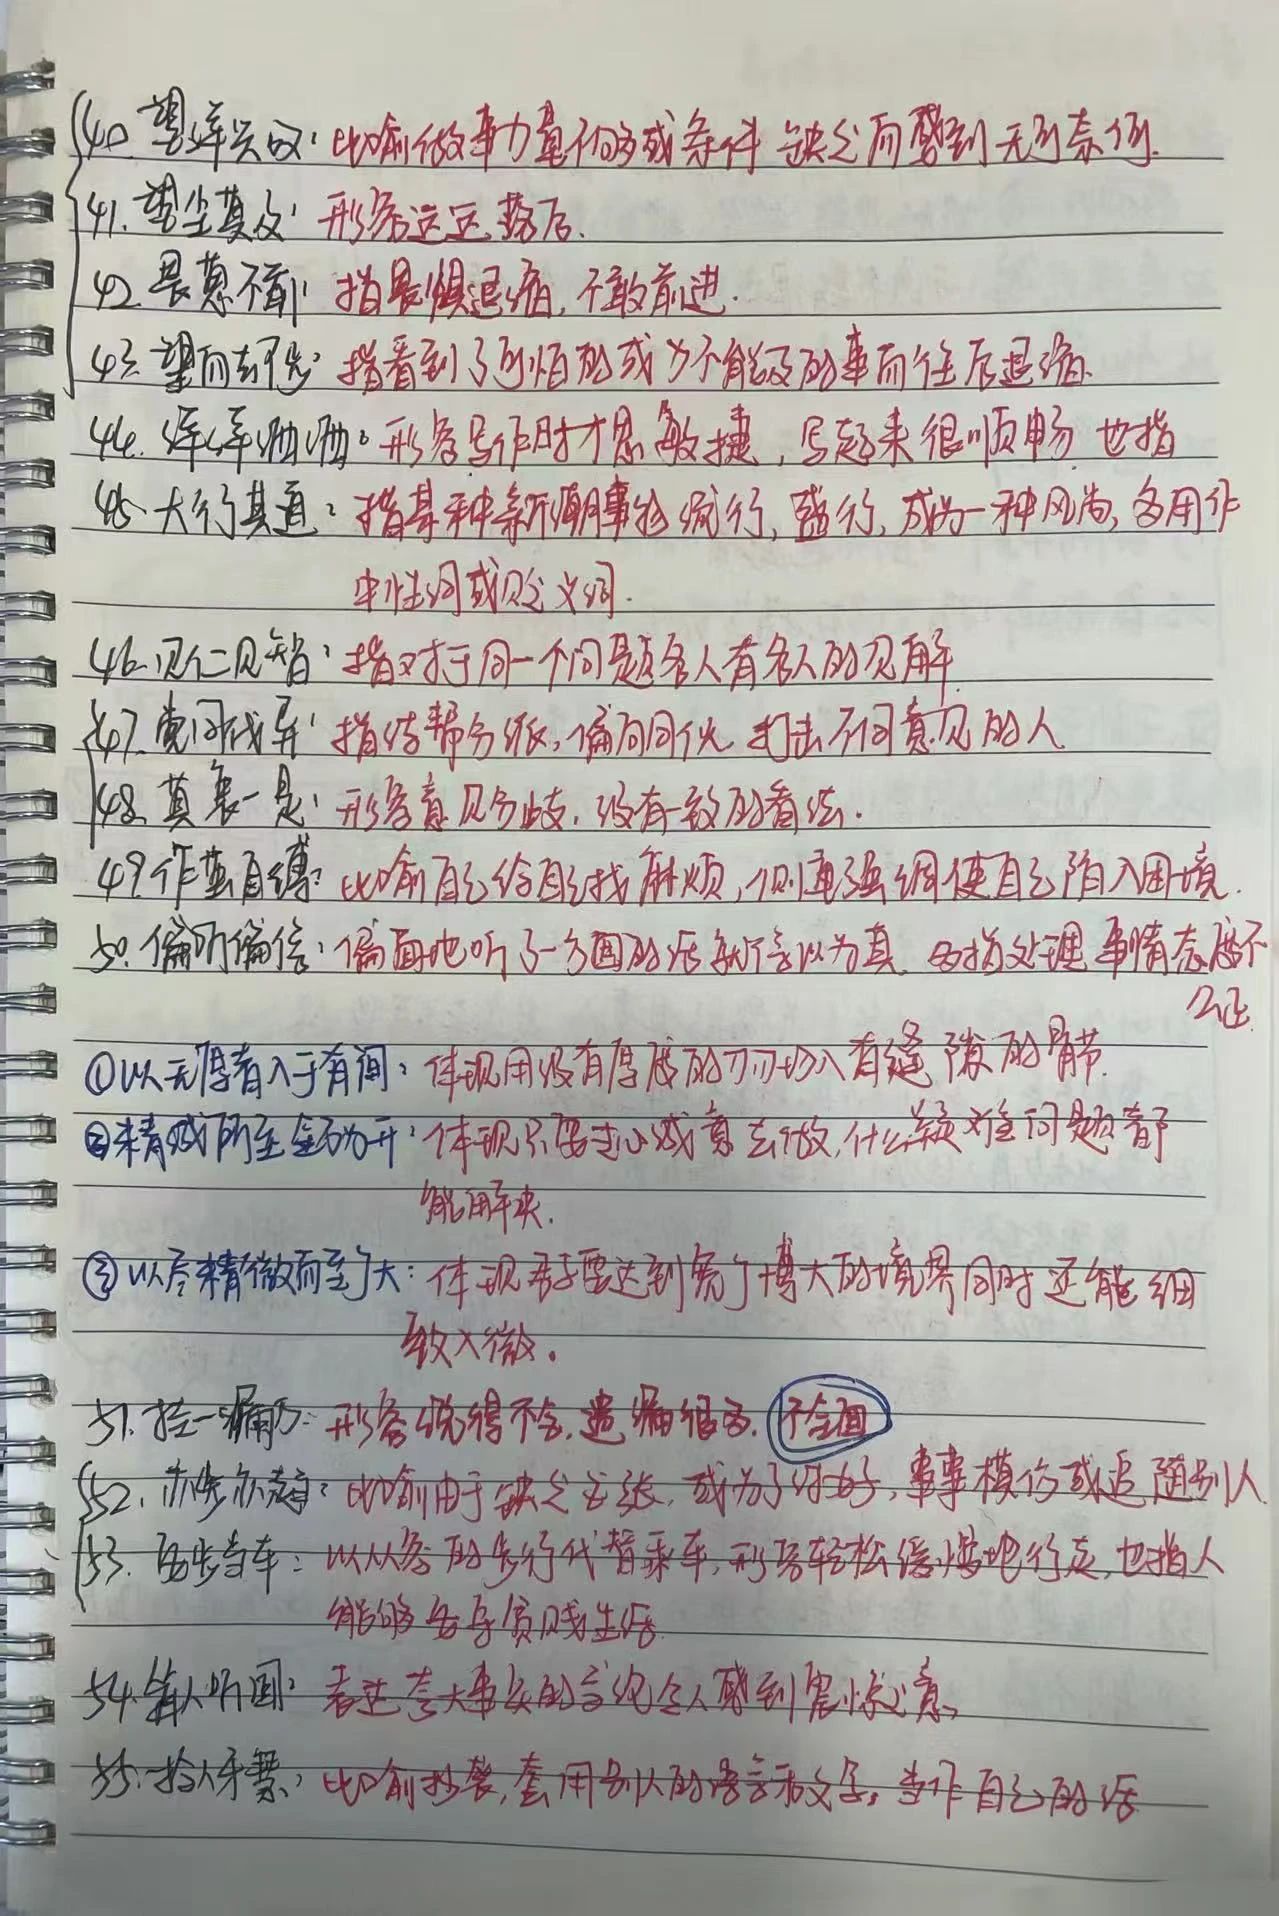 40. 望洋兴叹：比喻做事力量不够或条件缺乏而感到无可奈何.
41. 望尘莫及：形容远远落后.
42. 畏葸不前：指畏惧退缩，不敢前进.
43. 望而却步：指看到了可怕的或力不能及的事而往后退缩.
44. 洋洋洒洒：形容写作时才思敏捷，写起来很顺畅 也指
45. 大行其道：指某种新潮事物流行，盛行，成为一种风尚，多用作
中性词或贬义词.
46. 见仁见智：指对于同一个问题各人有各人的见解
47. 党同伐异：指结帮分派，偏向同伙 打击不同意见的人
48. 莫衷一是：形容意见分歧，没有一致的看法.
49. 作茧自缚：比喻自己给自己找麻烦，侧重强调使自己陷入困境.
50. 偏听偏信：偏面地听了一方面的话就信以为真 多指处理事情态度不
公正.
①以无厚者入于有间：体现用没有厚度的刀刃切入有缝隙的骨节.
②精诚所至金石为开：体现只要是心诚意去做，什么疑难问题都
能解决.
③以尽精微而至广大：体现君子要达到宽广博大的境界同时还能细
致入微。
51. 挂一漏万：形容说得不全，遗漏很多. 不全面
52. 亦步亦趋：比喻由于缺乏主张，或为了讨好，事事模仿或追随别人
53. 安步当车：以从容的步行代替乘车，形容轻松缓慢地行走，也指人
能够安守贫贱生活
54. 耸人听闻：表达夸大事实的言论令人感到震惊之意
55. 拾人牙慧：比喻抄袭，套用别人的语言和文字，当作自己的话